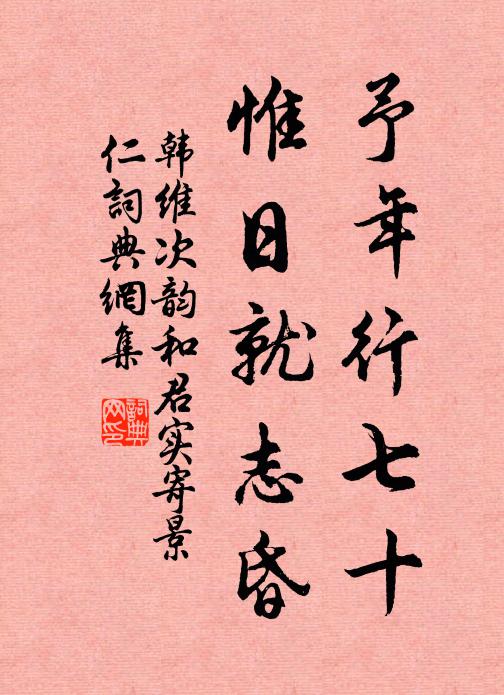 予年行七十
惟日就志昏
韩维次韵和君实寄景
仁詞典網集
詞典网印